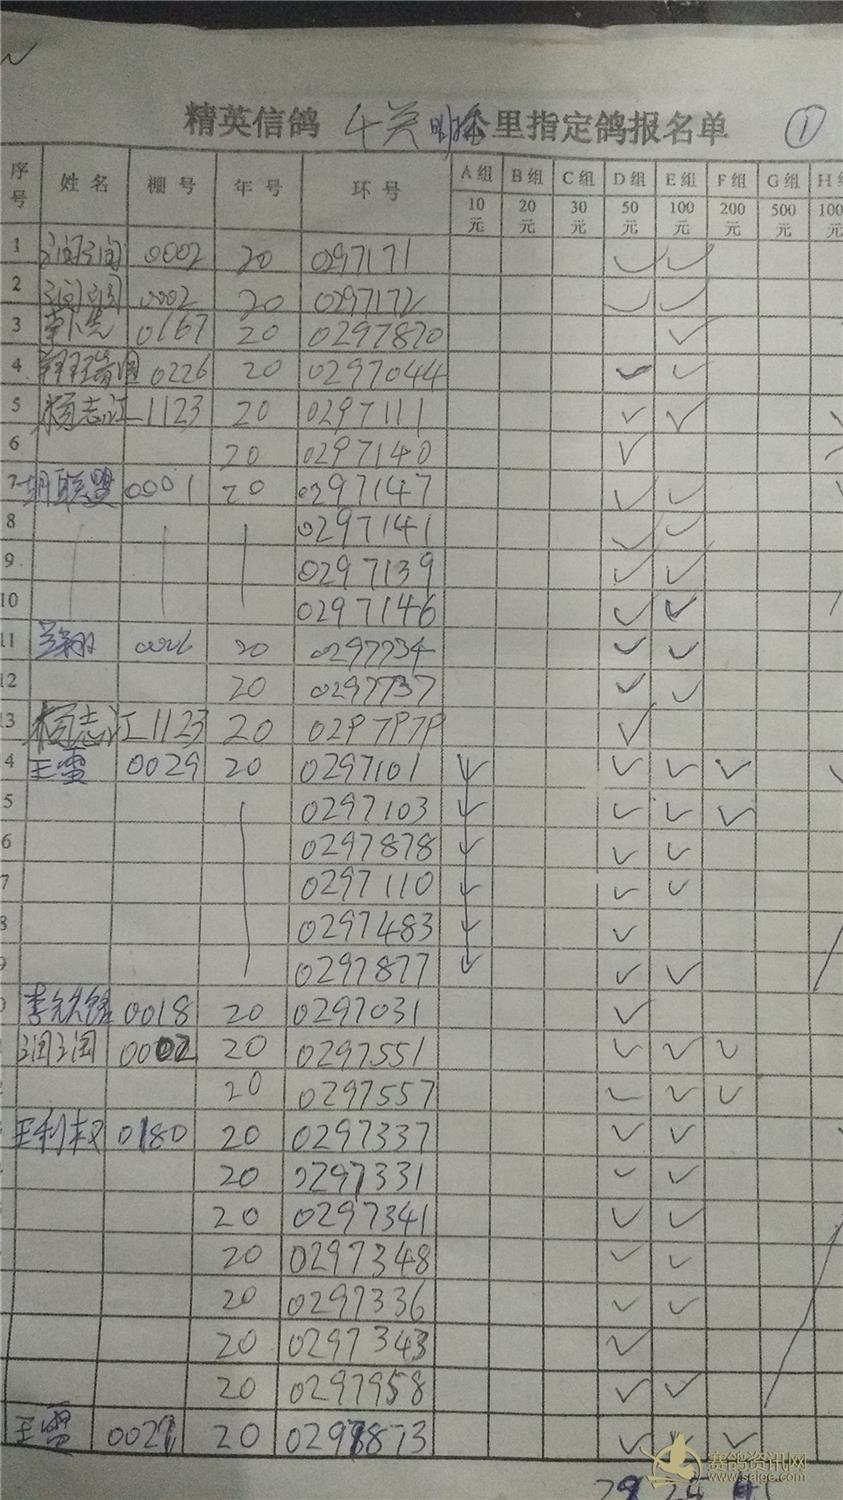 精英信鸽 公里指定鸽报名单 ①
序号 姓名 棚号 年号 环号 A组 B组 C组 D组 E组 F组 G组 H组
10元 20元 30元 50元 100元 200元 500元 100
1 0002 20 0297171 ✓ ✓
2 0002 20 0297172 ✓ ✓
3 0167 20 0297870 ✓
4 0226 20 0297044 ✓ ✓
5 杨志江 1123 20 0297111 ✓ ✓
6 20 0297140 ✓
7 胡联盟 0001 20 0297147 ✓ ✓
8 0297141 ✓ ✓
9 0297139 ✓ ✓
10 0297146 ✓ ✓
11 20 0297734 ✓ ✓
12 20 0297737 ✓ ✓
13 杨志江 1123 20 0297979 ✓
4 王雷 0029 20 0297101 ✓ ✓ ✓ ✓
5 0297103 ✓ ✓ ✓ ✓
6 0297878 ✓ ✓ ✓
7 0297110 ✓ ✓ ✓
8 0297483 ✓ ✓
9 0297877 ✓ ✓ ✓
0 0018 20 0297031 ✓
润润 0002 20 0297551 ✓ ✓ ✓
20 0297557 ✓ ✓ ✓
王利权 0180 20 0297337 ✓ ✓
20 0297331 ✓ ✓
20 0297341 ✓ ✓
20 0297348 ✓ ✓
20 0297336 ✓ ✓
20 0297343 ✓
20 0297958 ✓ ✓
王雷 0029 20 0297873 ✓ ✓ ✓
赛鸽资讯网
www.saige.com